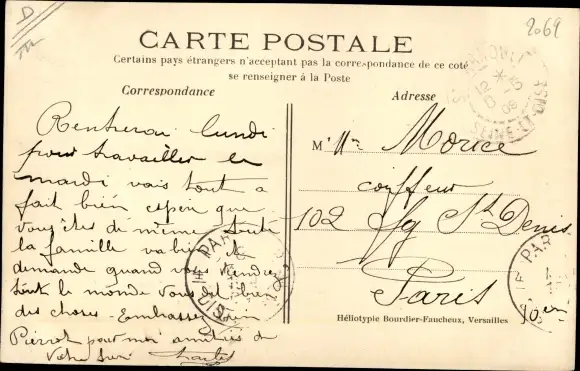 D
2069
CARTE POSTALE
Certains pays étrangers n'acceptant pas la correspondance de ce coté
se renseigner à la Poste
Correspondance
Adresse
Rentrerai lundi
pour travailler le
mardi vais tout a
fait bien espère que
vous êtes de même toute
la famille va bien et
demande quand vous viendrez
tout le monde vous dit bien
des choses. Embrassez bien
Pierrot pour moi amitiés de
votre
M
Morice
coiffeur
102 Fg St Denis
Paris
10em
SEINE-ET-OISE
12
09
PARIS
PARIS
DISTRIBUTION
Héliotypie Bourdier-Faucheux, Versailles